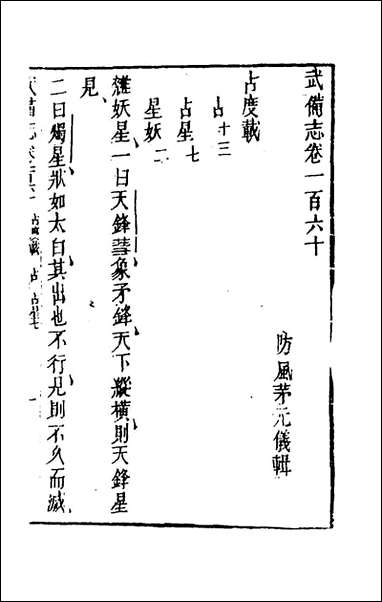 武備志卷一百六十
防風茅元儀輯
占度載
占十三
占星七
星妖二
雜妖星一曰天鋒彗象矛鋒天下縱橫則天鋒星
見
二曰燭星狀如太白其出也不行見則不久而滅
占度載 占 占星七 一